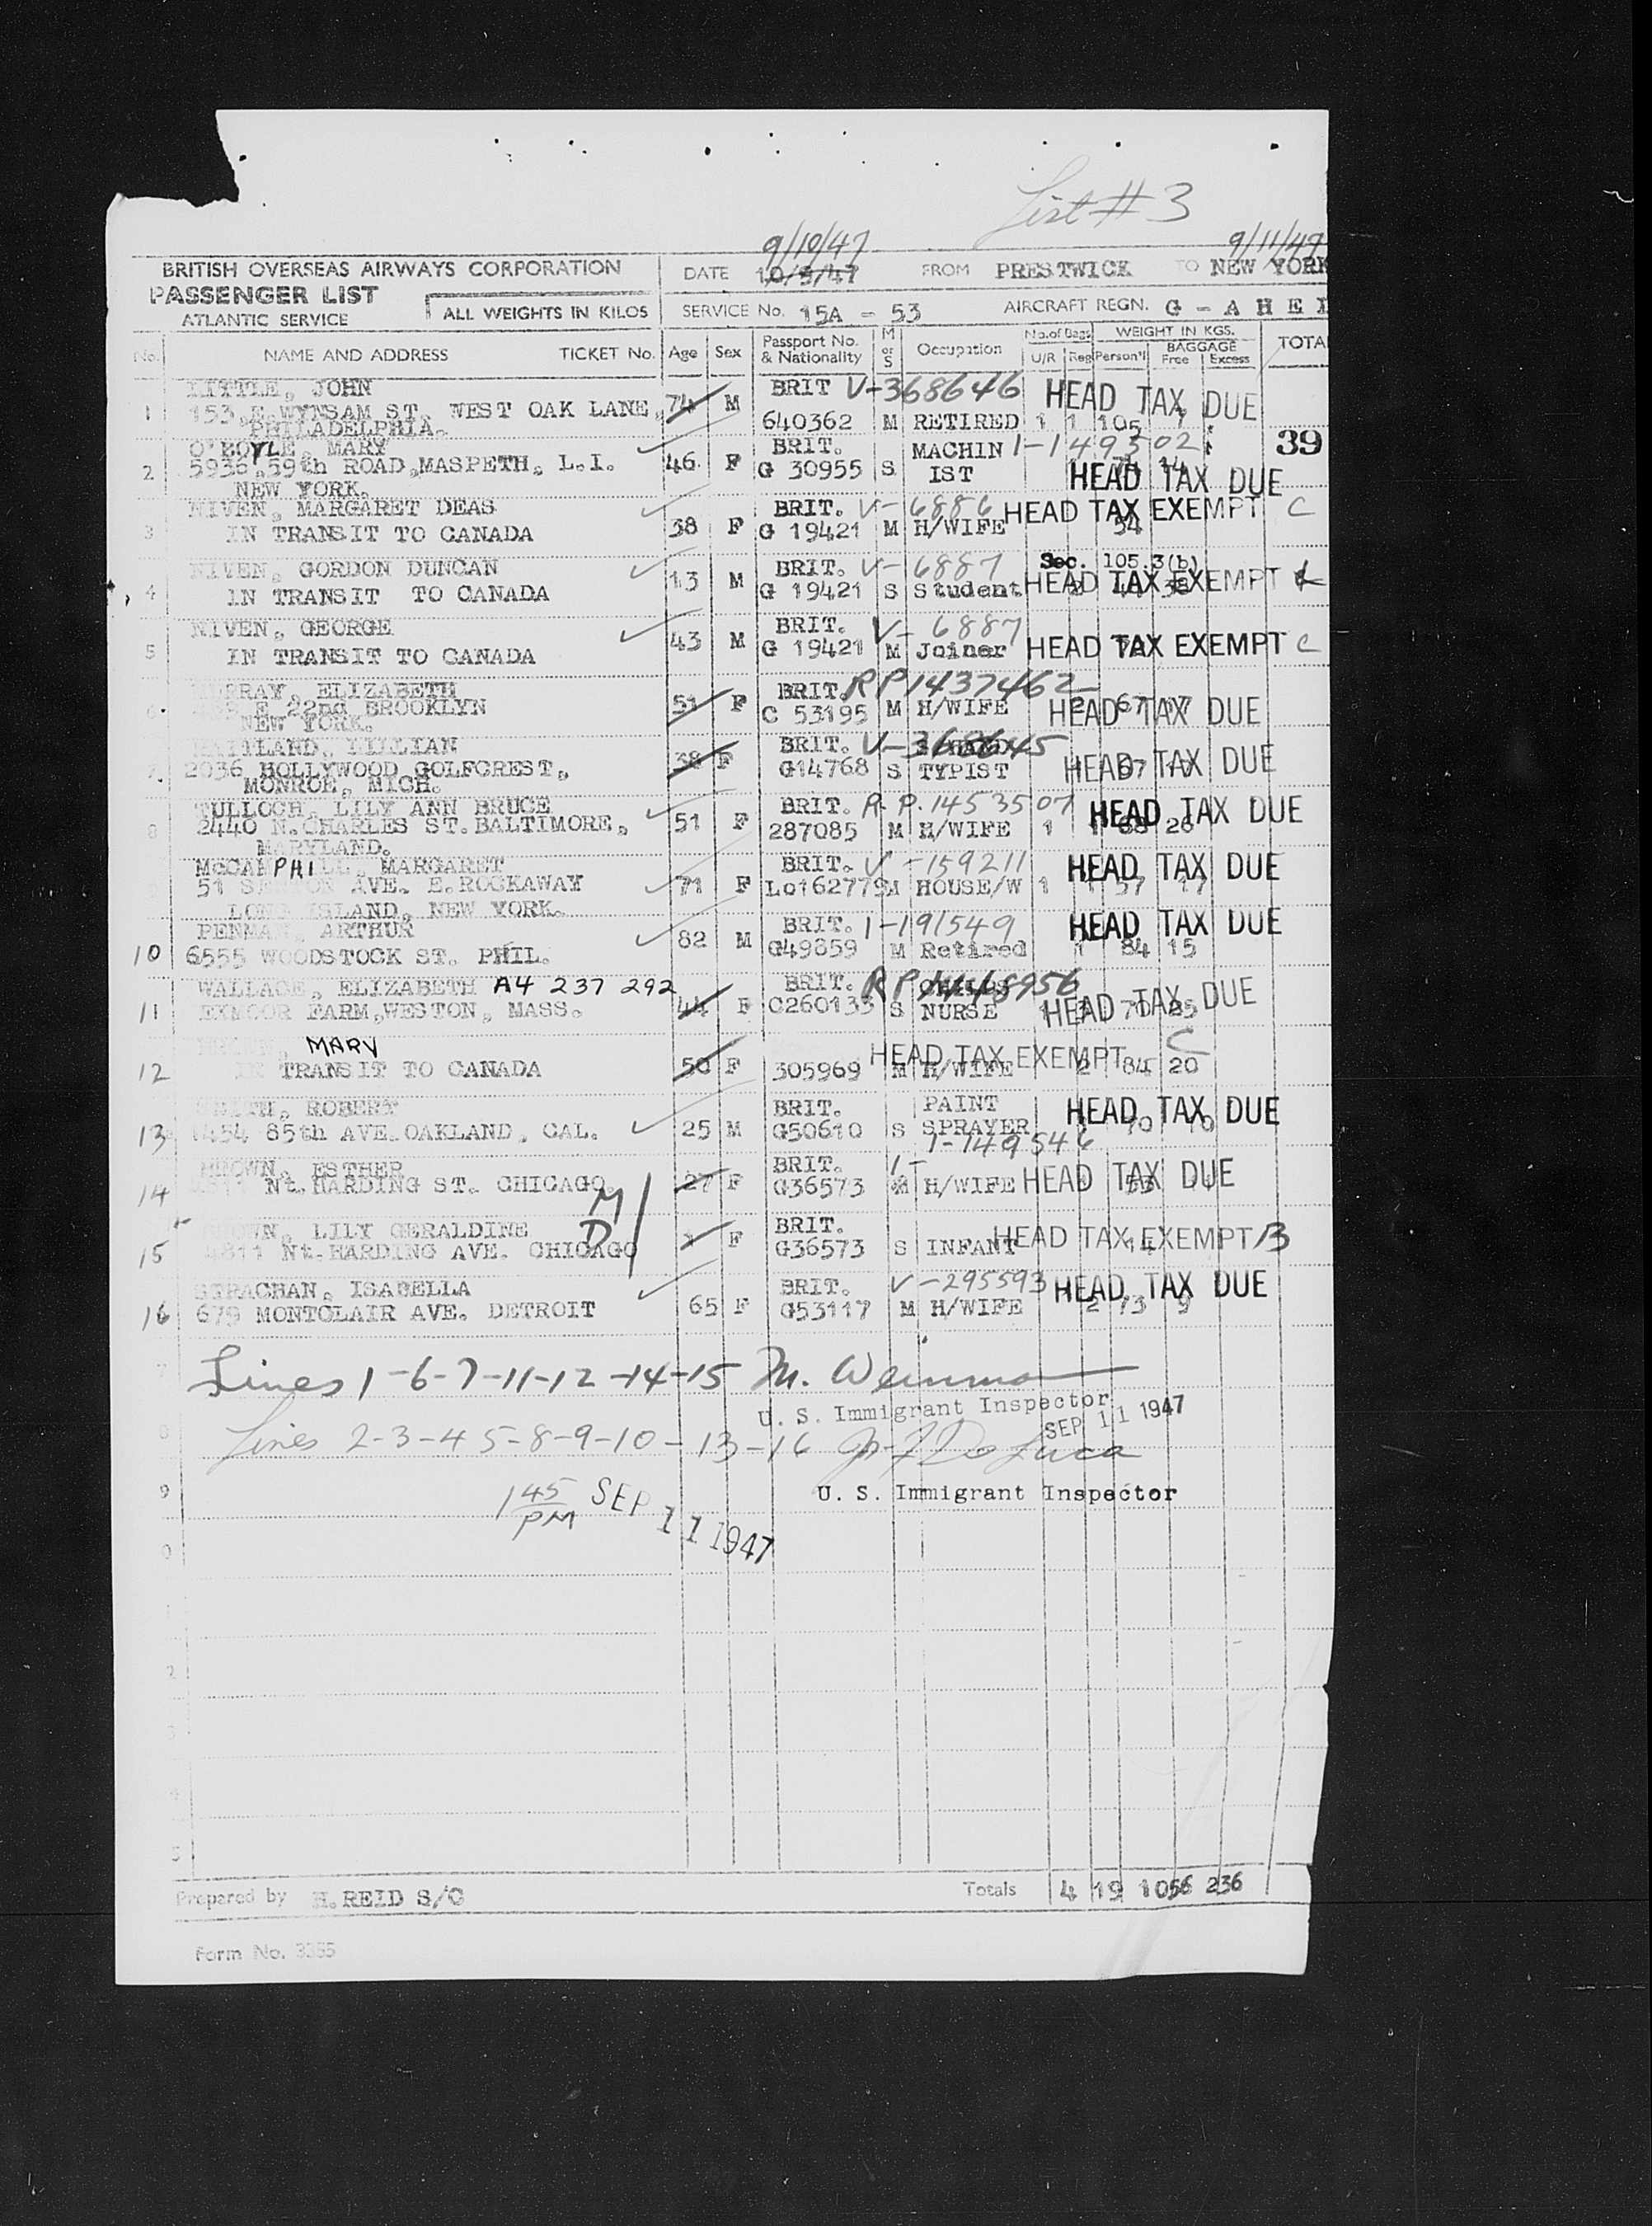 List # 3
9/10/47 9/11/47
BRITISH OVERSEAS AIRWAYS CORPORATION DATE 10/9/47 FROM PRESTWICK TO NEW YORK
PASSENGER LIST
ATLANTIC SERVICE ALL WEIGHTS IN KILOS SERVICE No. 15A - 53 AIRCRAFT REGN. G - A H E
No. NAME AND ADDRESS TICKET No. Age Sex Passport No. & Nationality M or S Occupation No. of Bags U/R Reg WEIGHT IN KGS. Person'l BAGGAGE Free Excess TOTA
LITTLE, JOHN BRIT V-368646 HEAD TAX DUE
1 153, E. WYNSAM ST. WEST OAK LANE, 74 M 640362 M RETIRED 1 1 105 7
PHILADELPHIA.
O'BOYLE, MARY BRIT. MACHIN 1-149502 39
2 5936, 59th ROAD, MASPETH, L.I. 46 F G 30955 S IST HEAD TAX DUE
NEW YORK.
NIVEN, MARGARET DEAS BRIT. V-6886 HEAD TAX EXEMPT C
3 IN TRANSIT TO CANADA 38 F G 19421 M H/WIFE 54
Sec. 105.3(b)
NIVEN, GORDON DUNCAN BRIT. V-6887
4 IN TRANSIT TO CANADA 13 M G 19421 S Student HEAD TAX EXEMPT
NIVEN, GEORGE BRIT. V-6887
5 IN TRANSIT TO CANADA 43 M G 19421 M Joiner HEAD TAX EXEMPT C
MURRAY, ELIZABETH BRIT. RP1437462
6 E 22nd BROOKLYN 51 F C 53195 M H/WIFE 2 67 17 HEAD TAX DUE
NEW YORK.
MAITLAND, LILLIAN BRIT. V-368645
7 2036 HOLLYWOOD GOLFCREST, 38 F G14768 S TYPIST HEAD TAX DUE
MONROE, MICH.
TULLOCH, LILY ANN BRUCE BRIT. R.P. 1453507 HEAD TAX DUE
8 2440 N. CHARLES ST. BALTIMORE, 51 F 287085 M H/WIFE 1 1 68 20
MARYLAND.
MCCAMPHILL, MARGARET BRIT. V-159211 HEAD TAX DUE
51 AVE. E. ROCKAWAY 71 F Lo162779 M HOUSE/W 1 1 57 17
LONG ISLAND, NEW YORK.
PENMAN, ARTHUR BRIT. 1-191549 HEAD TAX DUE
10 6555 WOODSTOCK ST. PHIL. 82 M G49859 M Retired 1 84 15
WALLACE, ELIZABETH A4 237 292 BRIT. RP 1448956
11 EXMOOR FARM, WESTON, MASS. 44 F C260133 S NURSE HEAD TAX DUE
MARY HEAD TAX EXEMPT C
12 IN TRANSIT TO CANADA 50 F 305969 M H/WIFE 2 84 20
SMITH, ROBERT BRIT. PAINT HEAD TAX DUE
13 1454 85th AVE. OAKLAND, CAL. 25 M G50610 S SPRAYER 70 10
1-149546
BROWN, ESTHER BRIT. 1-
14 Nt. HARDING ST. CHICAGO. 27 F G36573 M H/WIFE HEAD TAX DUE
M
BROWN, LILY GERALDINE D BRIT. HEAD TAX EXEMPT B
15 4811 Nt. HARDING AVE. CHICAGO 1 F G36573 S INFANT 14
STRACHAN, ISABELLA BRIT. V-295593 HEAD TAX DUE
16 679 MONTCLAIR AVE. DETROIT 65 F G53117 M H/WIFE 2 73 9
7 Lines 1-6-7-11-12-14-15 M. Weinman
U. S. Immigrant Inspector
SEP 11 1947
8 Lines 2-3-4 5-8-9-10-13-16 De Luca
9 U. S. Immigrant Inspector
1 45 PM SEP 11 1947
0
2
3
4
5
Prepared by H. REID S/O Totals 4 19 1056 236
Form No. 3355